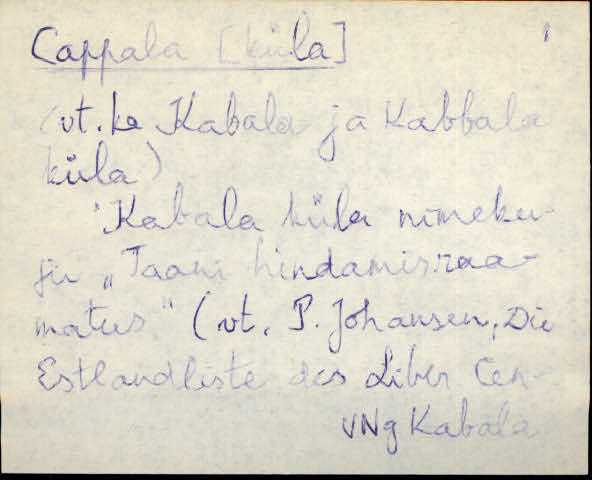 Cappala [küla] 1
(vt. ka Kabala ja Kabbala
küla)
Kabala küla nimeku-
ju „Taani hindamisraa-
matus" (vt. P. Johansen, Die
Estlandliste des Liber Cen-
VNg Kabala